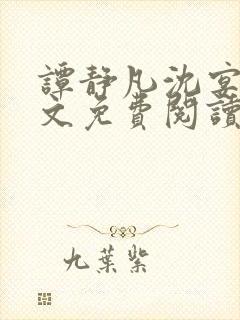 譚靜凡沈宴
文免費閱讀
九葉紫